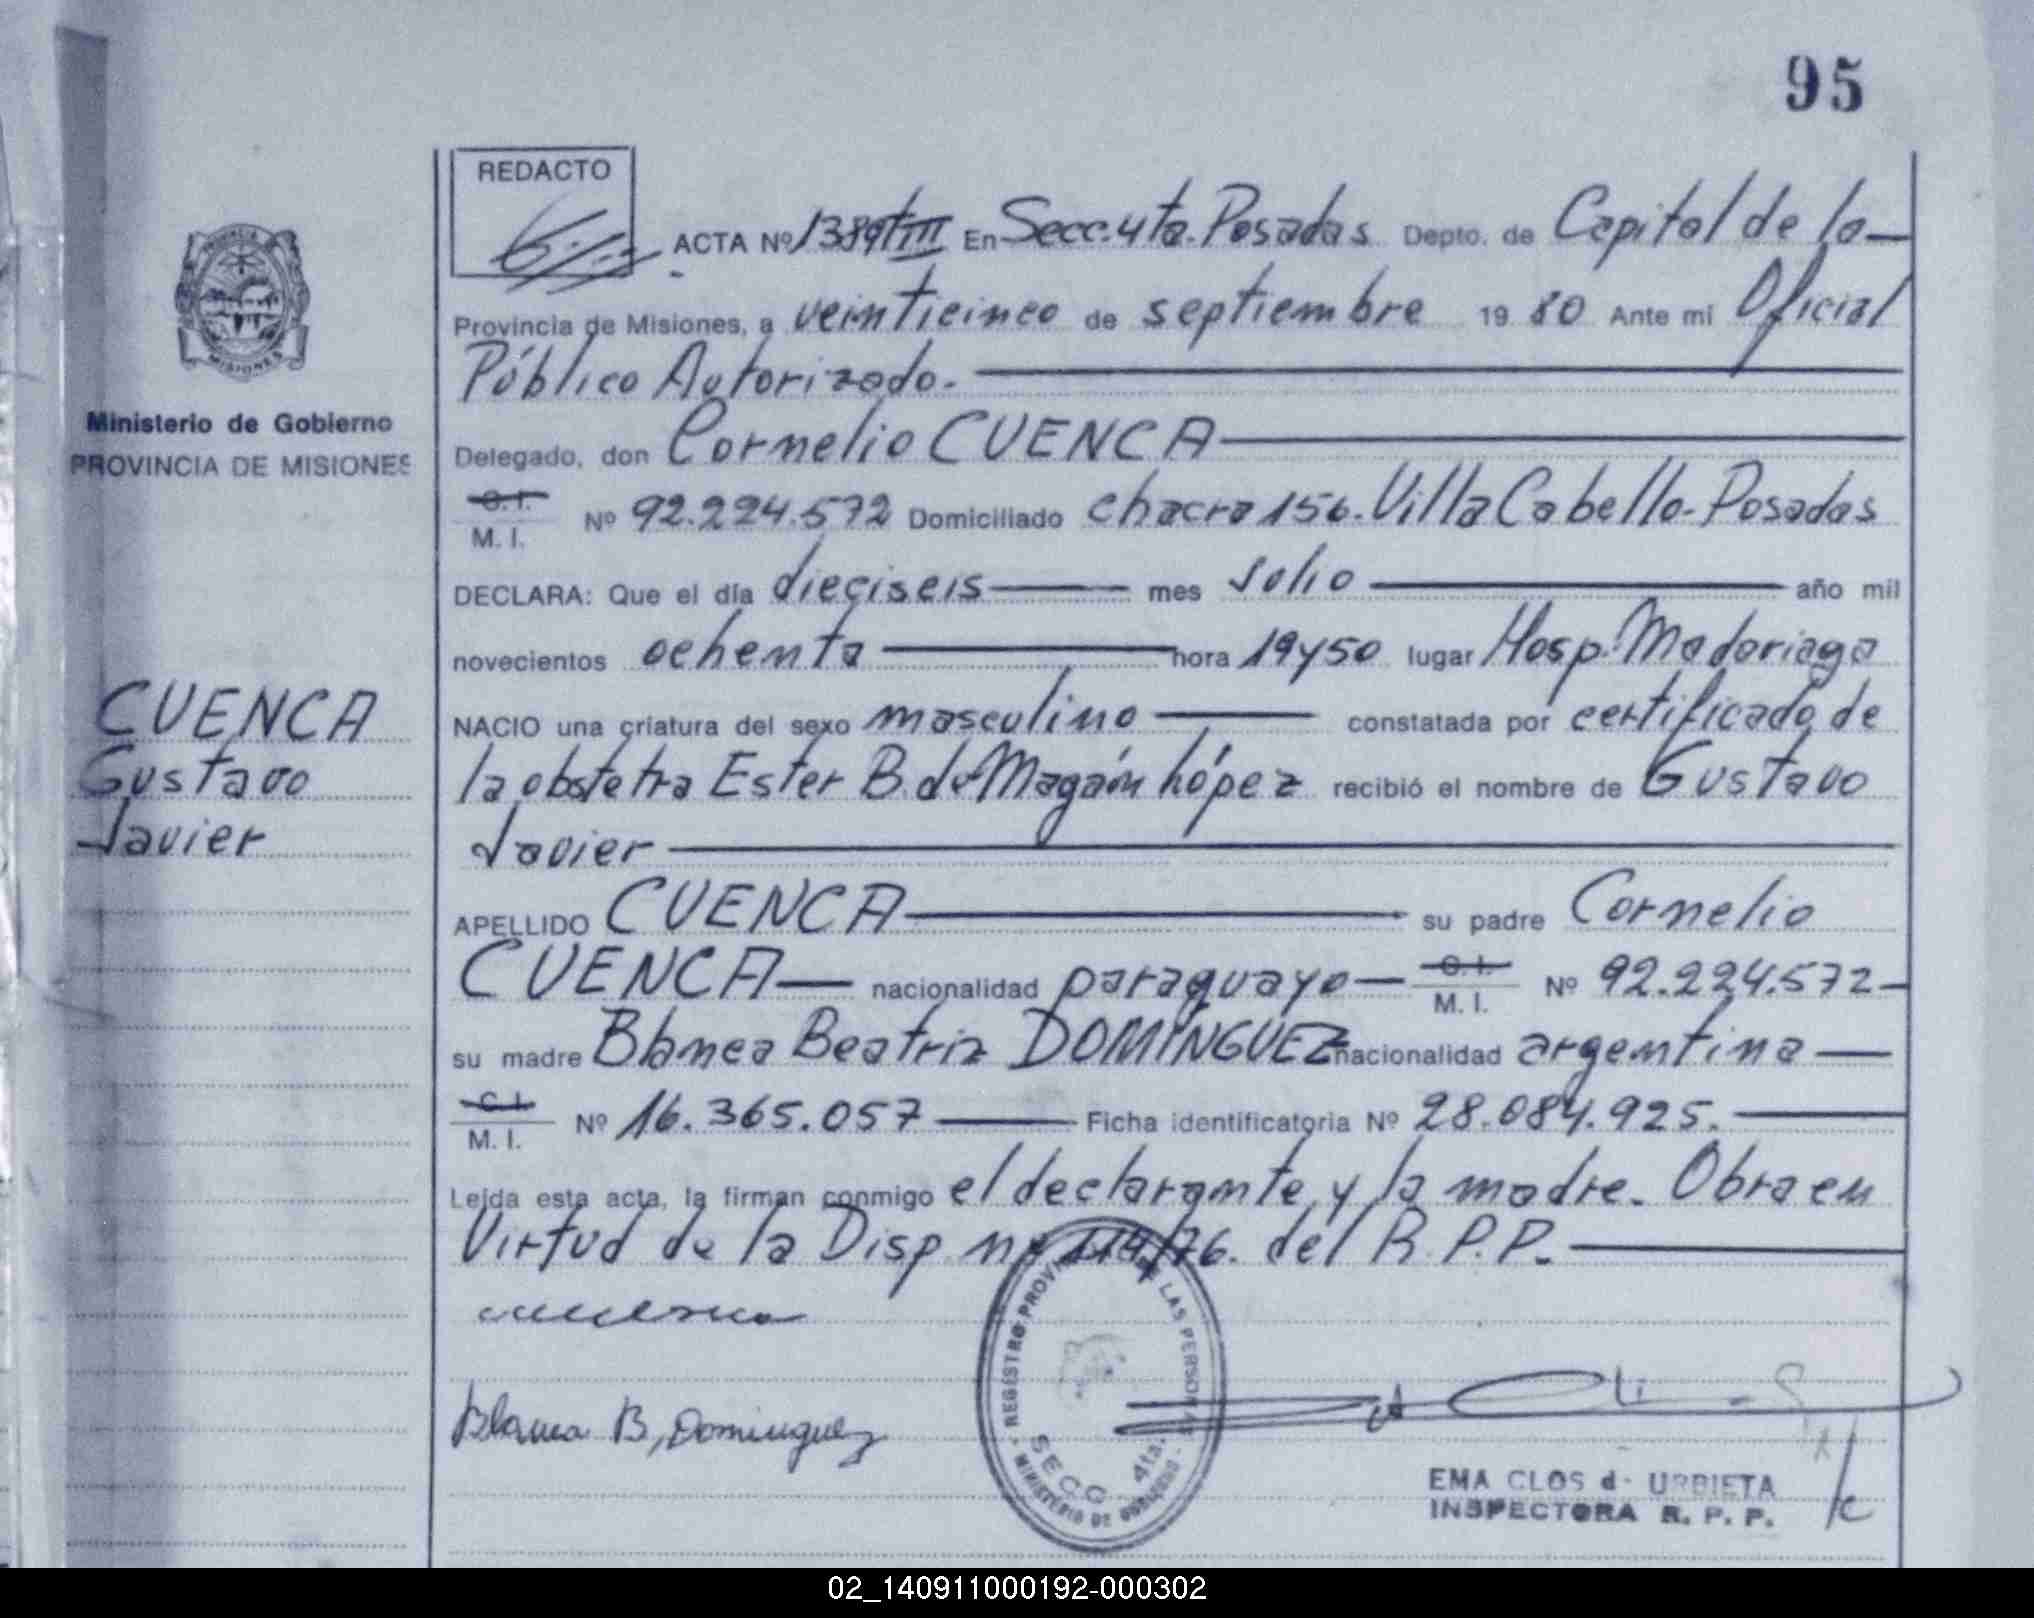 95
REDACTO
ACTA Nº 1389/TIII En Secc. 4ta. Posadas Depto. de Capital de la
Provincia de Misiones, a veinticinco de septiembre 19 80 Ante mi Oficial
Público Autorizado.
Delegado, don Cornelio CUENCA
C. I.
M. I. Nº 92.224.572 Domiciliado chacra 156. Villa Cabello. Posadas
DECLARA: Que el día dieciseis mes Julio año mil
novecientos ochenta hora 19 y 50 lugar Hosp. Madariaga
NACIO una criatura del sexo masculino constatada por certificado de
la obstetra Ester B. de Magán López recibió el nombre de Gustavo
Javier
APELLIDO CUENCA su padre Cornelio
CUENCA nacionalidad paraguayo C. I. M. I. Nº 92.224.572
su madre Blanca Beatriz DOMÍNGUEZ nacionalidad argentina
C. I.
M. I. Nº 16.365.057 Ficha identificatoria Nº 28.084.925.
Leída esta acta, la firman conmigo el declarante y la madre. Obra en
Virtud de la Disp. nº 114/76. del R.P.P.
Blanca B, Dominguez
PROVINCIA DE
MISIONES
Ministerio de Gobierno
PROVINCIA DE MISIONES
CUENCA
Gustavo
Javier
REGISTRO PROVINCIAL DE LAS PERSONAS
SECC. 4ta.
MINISTERIO DE GOBIERNO
EMA CLOS d. URBIETA
INSPECTORA R. P. P.
02_140911000192-000302